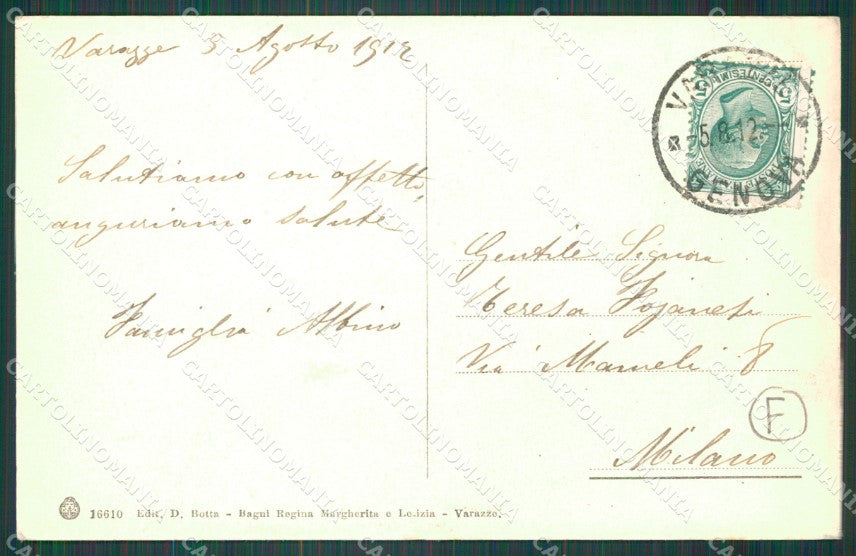 Varazze 5 Agosto 1912
Salutiamo con affetto,
auguriamo salute
Famiglia Albino
VARAZZE
-5.8.12-
GENOVA
CENTESIMI 5
Gentile Signora
Teresa
Via Mameli 8
Milano
F
16610 Edit. D. Botta - Bagni Regina Margherita e Letizia - Varazze.
CARTOLINOMANIA